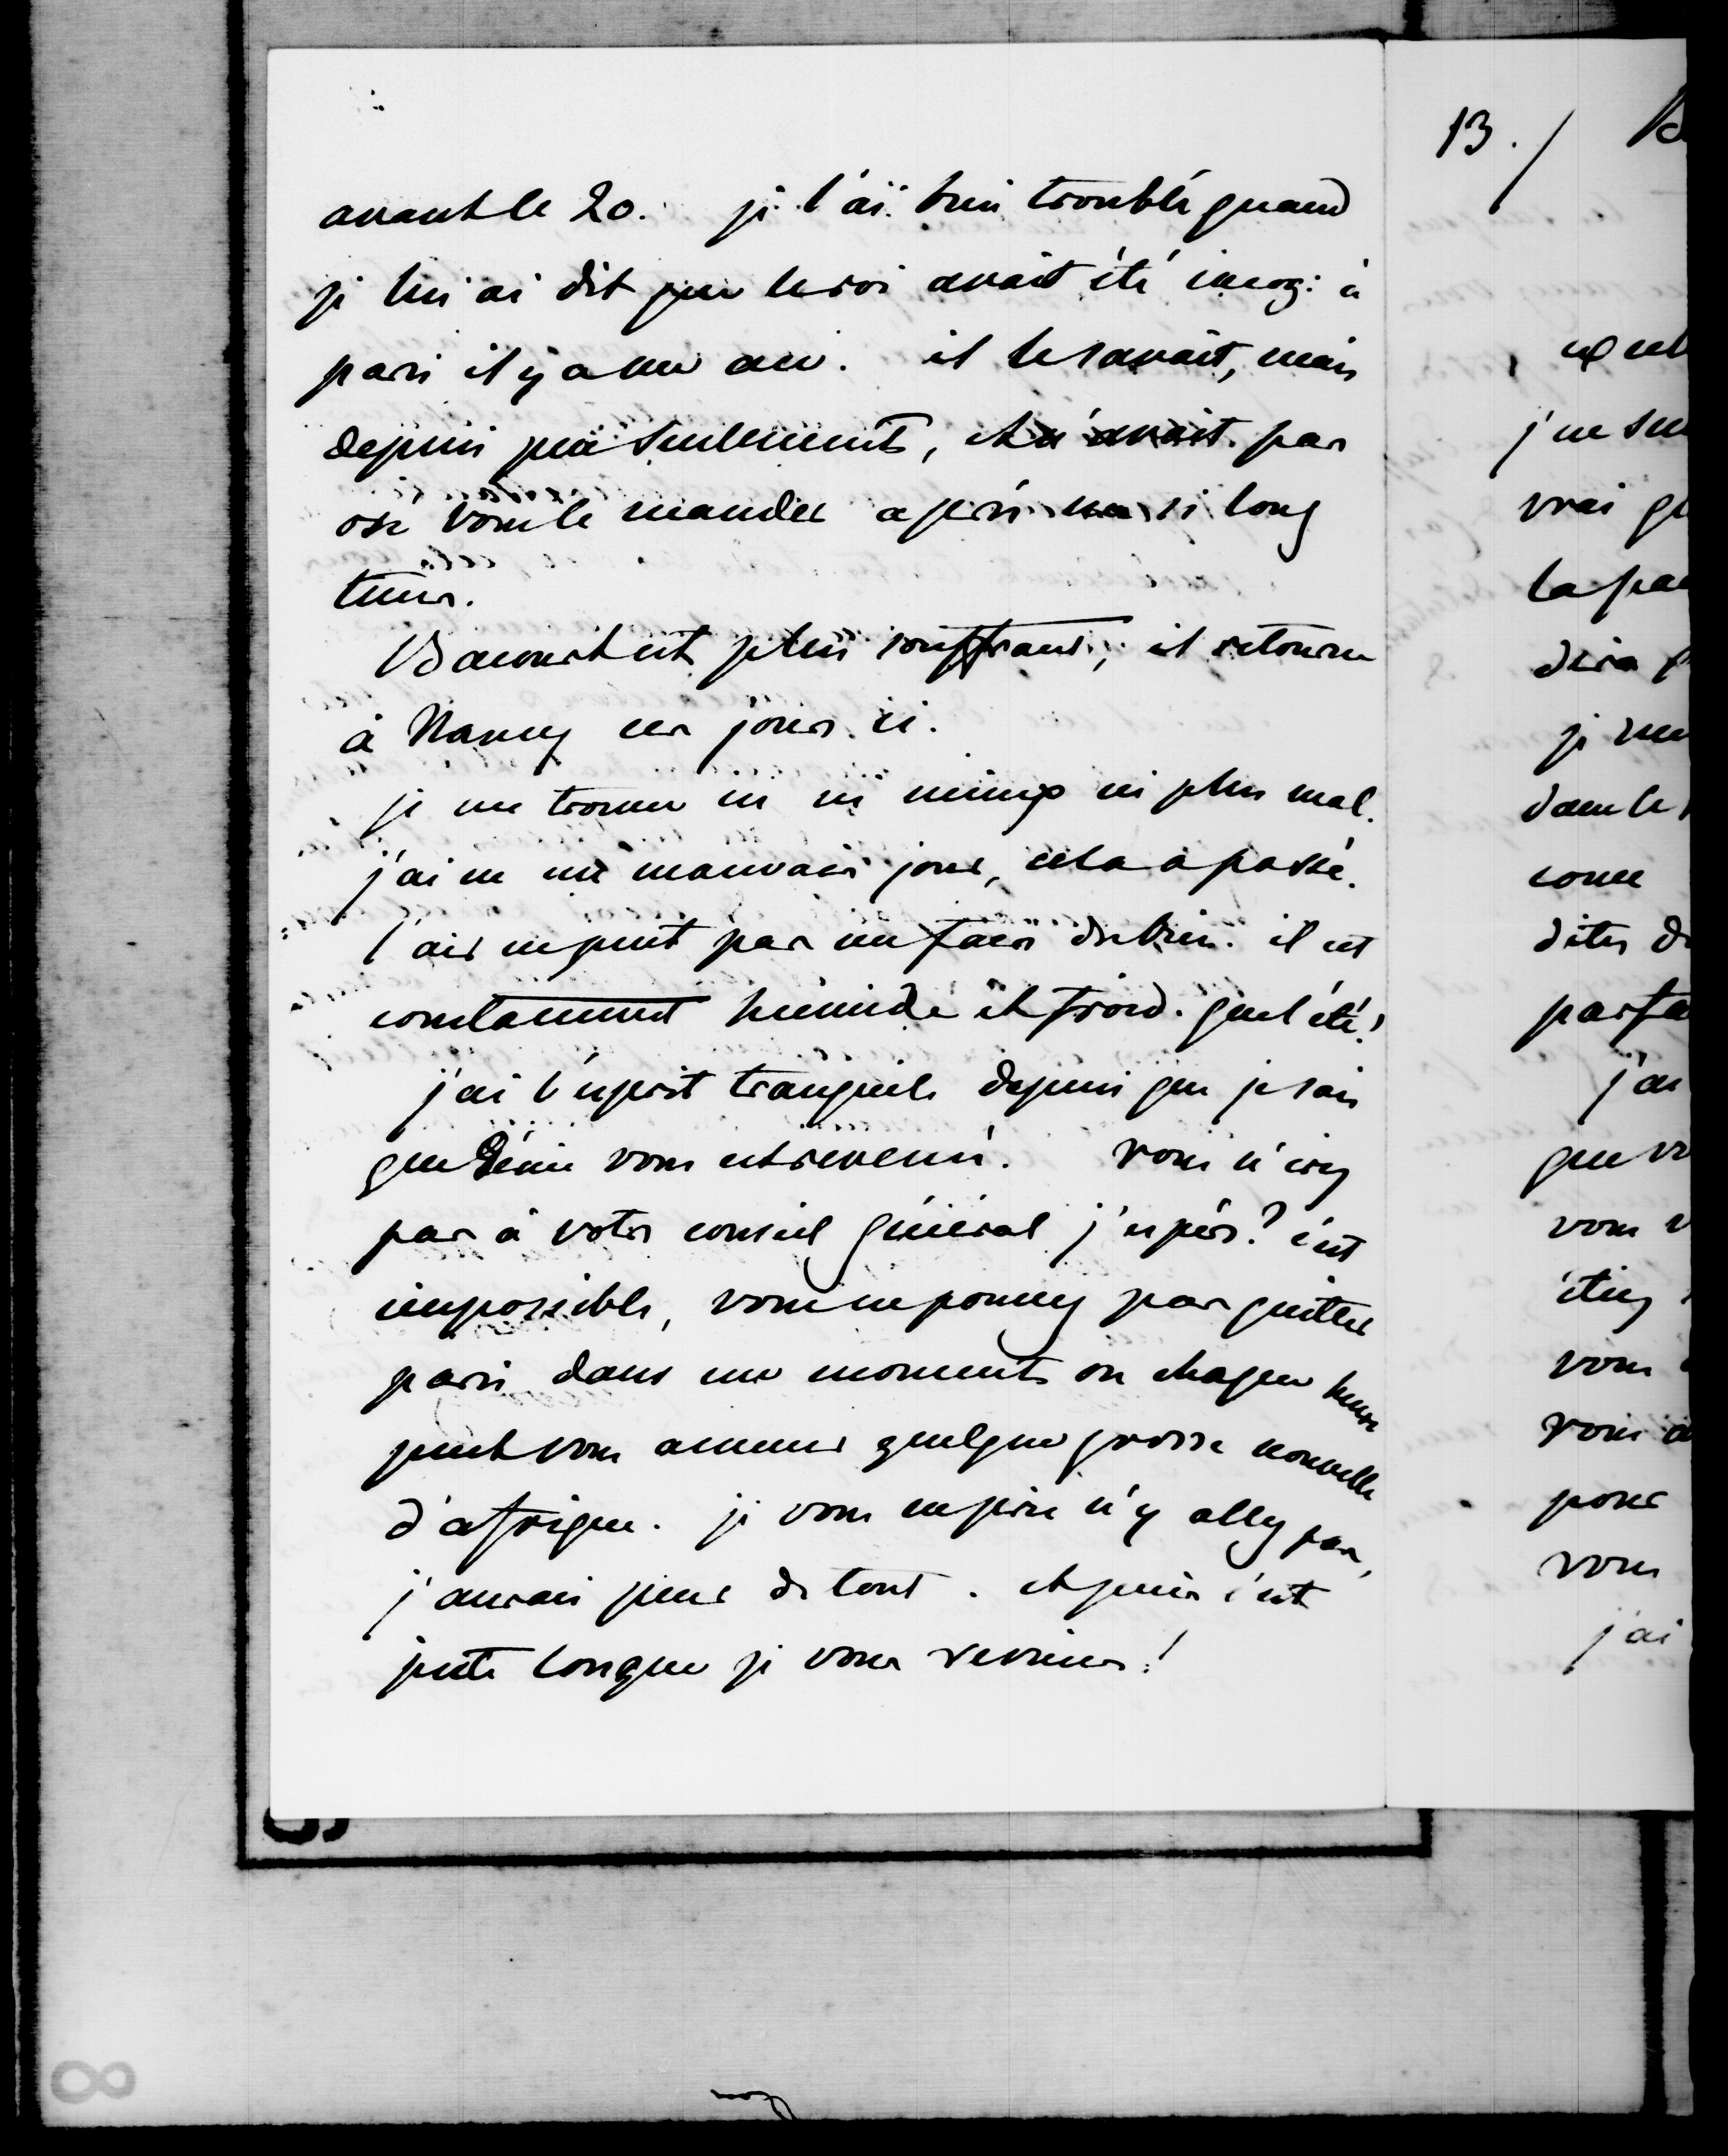 avant le 20. je l'ai bien troublé quand
je lui ai dit que le roi avait été incog: à
paris il y a un an. il le savait, mais
depuis peu seulement, et n'avait pas
osé vous le mander après un si long
tems.
Bacourt est plus souffrant, il retourne
à Nancy ces jours ci.
je me trouve ici ni mieux ni plus mal.
j'ai eu un mauvais jour, cela a passé.
l'air ne peut pas me faire du bien. il est
constamment humide et froid. quel été!
j'ai l'esprit tranquile depuis que je sais
que Génie vous est revenu. vous n'irez
pas à votre conseil général j'espère? c'est
impossible, vous ne pouvez pas quitter
paris dans un moment où chaque heure
peut vous amener quelque grosse nouvelle
d'afrique. je vous en prie n'y allez pas,
j'aurais peur de tout. et puis c'est
juste lorsque je vous reviens!
13. / B
j'ne su
vrai qu
la pai
dira
je me
dans le
come
dites d
parfa
j'ai
que vo
vous v
étiez
vous
vous a
pour
vous
j'ai
8